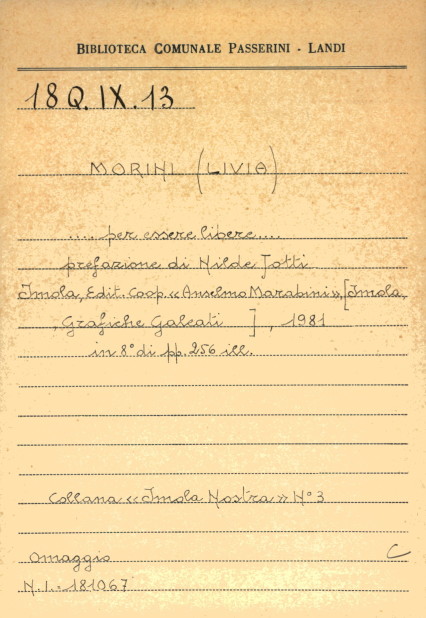 BIBLIOTECA COMUNALE PASSERINI - LANDI
18Q.IX.13
MORINI (LIVIA)
.... per essere libere....
prefazione di Nilde Jotti
Imola, Edit. Coop. «Anselmo Marabini», [Imola,
, Grafiche Galeati ] , 1981
in 8° di pp. 256 ill.
Collana «Imola Nostra» N° 3
Omaggio C
N.I.- 181067